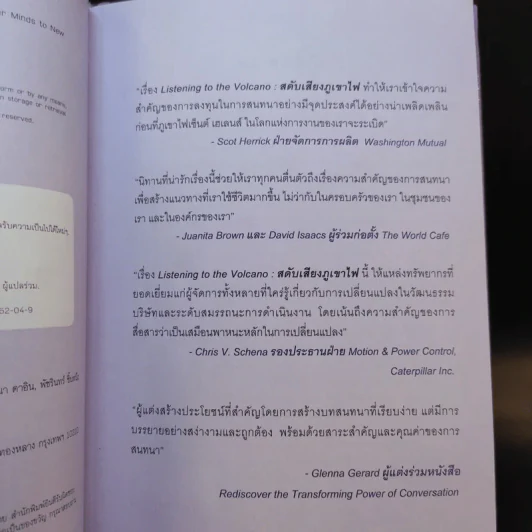 r Minds to New
orm or by any means,
n storage or retrieval
reserved.
ผู้แปลร่วม.
52-04-9
"เรื่อง Listening to the Volcano : สดับเสียงภูเขาไฟ ทำให้เราเข้าใจความ
สำคัญของการลงทุนในการสนทนาอย่างมีจุดประสงค์ได้อย่างน่าเพลิดเพลิน
ก่อนที่ภูเขาไฟเซ็นต์ เฮเลนส์ ในโลกแห่งการงานของเราจะระเบิด"
- Scot Herrick ฝ่ายจัดการการผลิต Washington Mutual
"นิทานที่น่ารักเรื่องนี้ช่วยให้เราทุกคนตื่นตัวถึงเรื่องความสำคัญของการสนทนา
เพื่อสร้างแนวทางที่เราใช้ชีวิตมากขึ้น ไม่ว่ากับในครอบครัวของเรา ในชุมชนของ
เรา และในองค์กรของเรา"
- Juanita Brown และ David Isaacs ผู้ร่วมก่อตั้ง The World Cafe
"เรื่อง Listening to the Volcano : สดับเสียงภูเขาไฟ นี้ ให้แหล่งทรัพยากรที่
ยอดเยี่ยมแก่ผู้จัดการทั้งหลายที่ใคร่รู้เกี่ยวกับการเปลี่ยนแปลงในวัฒนธรรม
บริษัทและระดับสมรรถนะการดำเนินงาน โดยเน้นถึงความสำคัญของการ
สื่อสารว่าเป็นเสมือนพาหนะหลักในการเปลี่ยนแปลง"
- Chris V. Schena รองประธานฝ่าย Motion & Power Control,
Caterpillar Inc.
"ผู้แต่งสร้างประโยชน์ที่สำคัญโดยการสร้างบทสนทนาที่เรียบง่าย แต่มีการ
บรรยายอย่างสง่างามและถูกต้อง พร้อมด้วยสาระสำคัญและคุณค่าของการ
สนทนา"
- Glenna Gerard ผู้แต่งร่วมหนังสือ
Rediscover the Transforming Power of Conversation